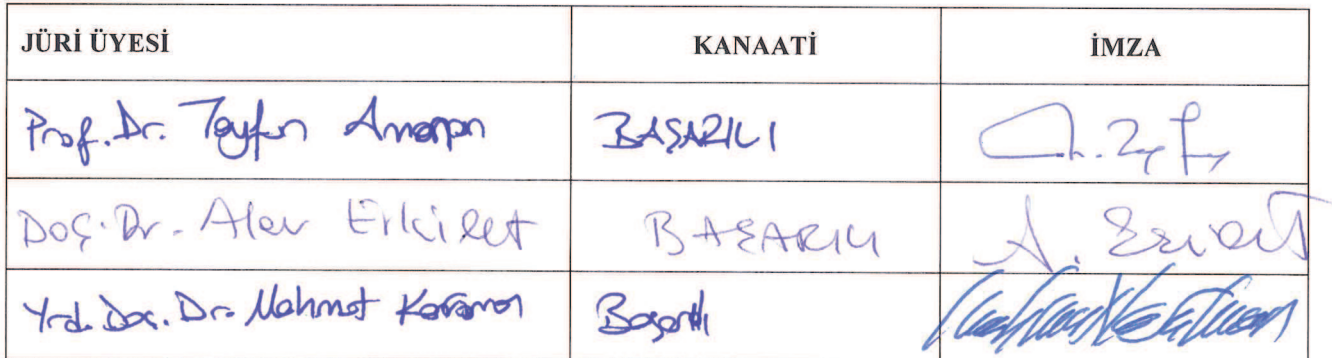 JÜRİ ÜYESİ KANAATİ İMZA
Prof. Dr. Tayfun Amman BAŞARILI
Doç. Dr. Alev Erkilet BAŞARILI A. Erkilet
Yrd. Doç. Dr. Mehmet Karaman Başarılı